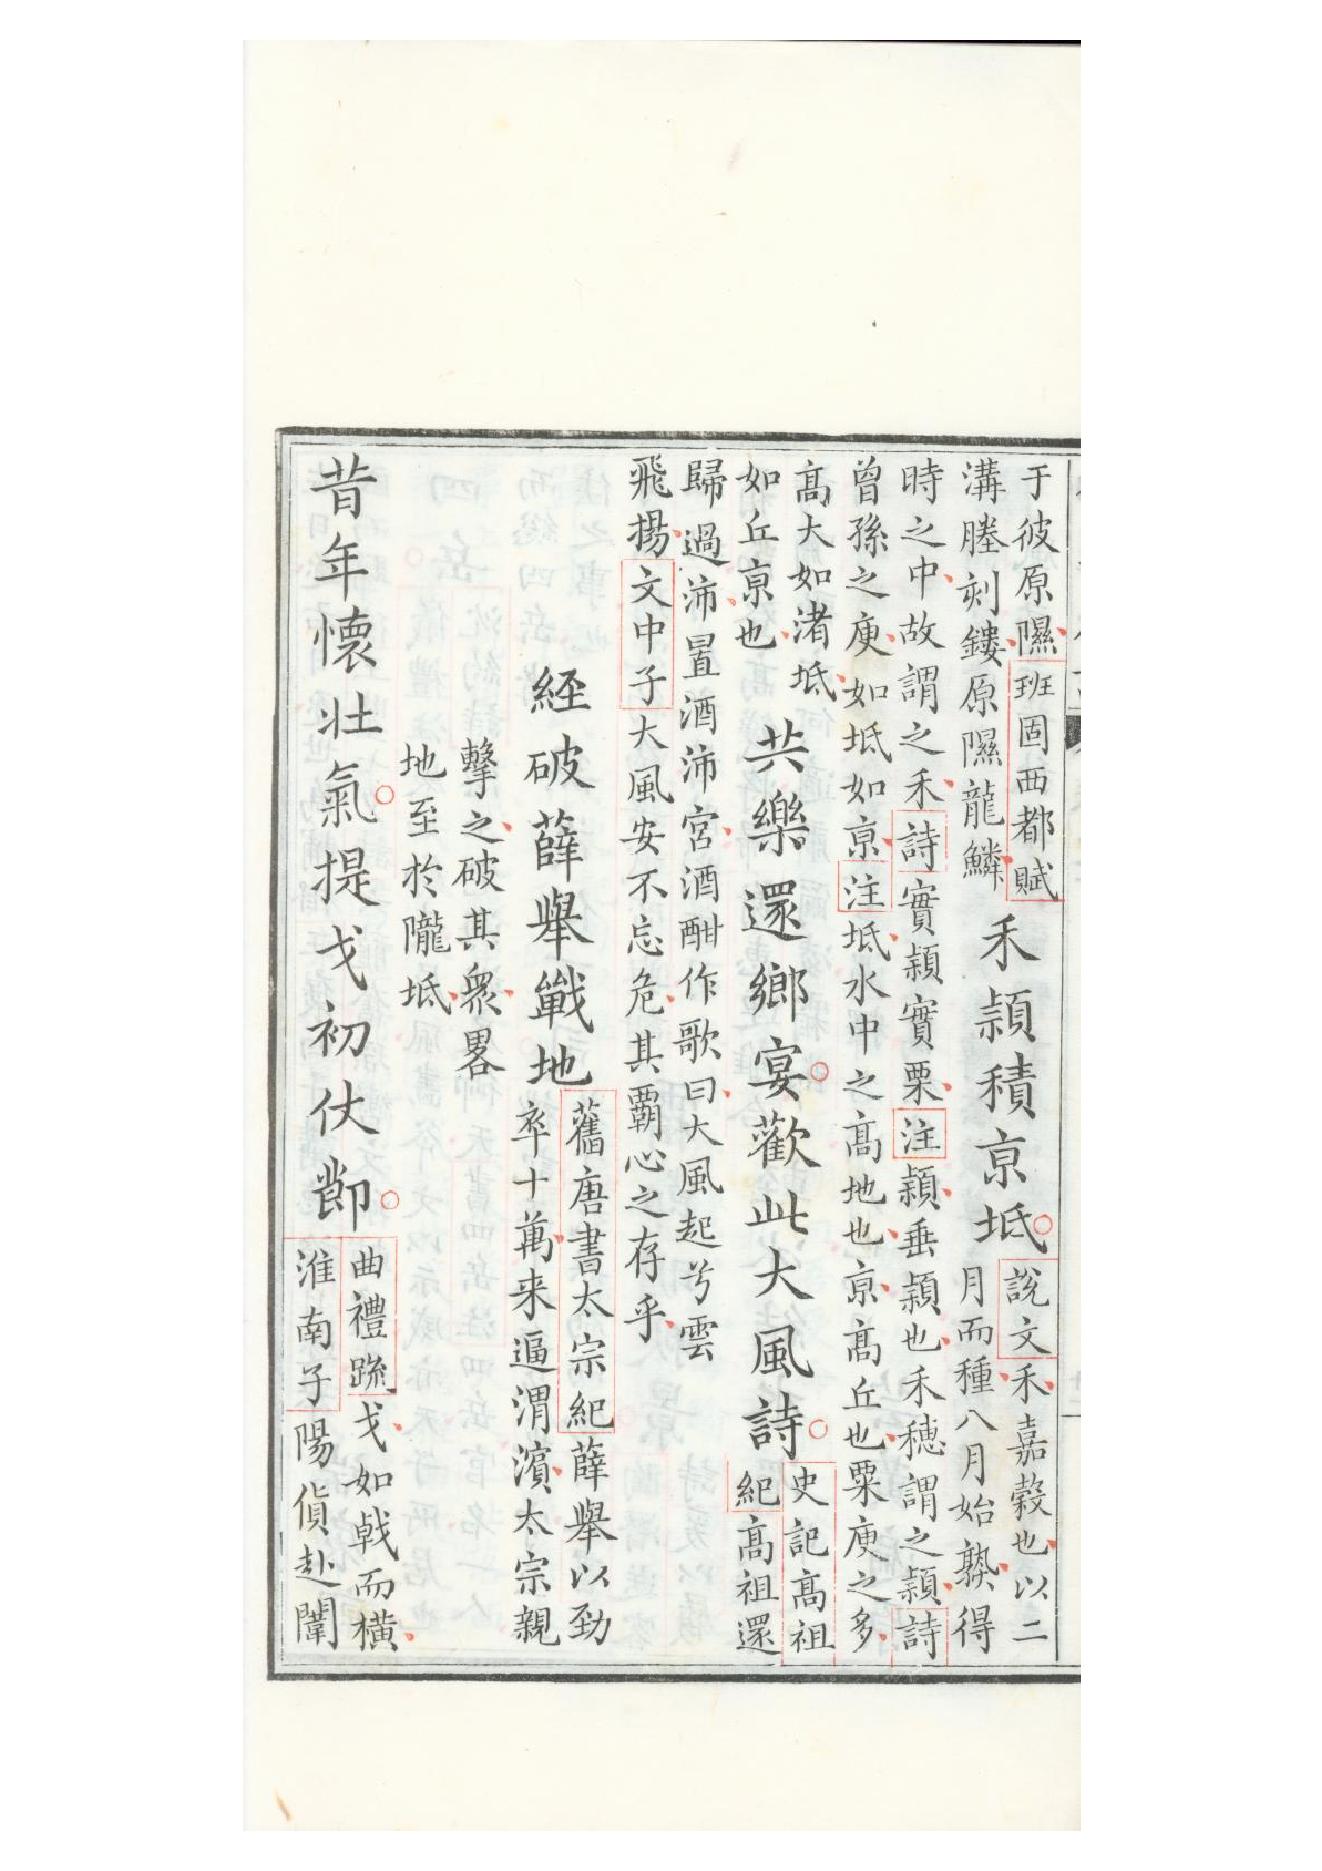 于彼原隰班固西都賦
溝塍刻鏤原隰龍鱗
禾穎積京坻
說文禾嘉穀也以二
月而種八月始孰得
時之中故謂之禾詩實穎實栗注穎垂穎也禾穗謂之穎詩
曾孫之庾如坻如京注坻水中之高地也京高丘也粟庾之多
高大如渚坻
如丘京也
共樂還鄉宴歡此大風詩
史記高祖
紀高祖還
歸過沛置酒沛宮酒酣作歌曰大風起兮雲
飛揚文中子大風安不忘危其霸心之存乎
經破薛舉戰地
舊唐書太宗紀薛舉以勁
卒十萬来逼渭濱太宗親
擊之破其衆畧
地至於隴坻
昔年懷壯氣提戈初仗節
曲禮疏戈如戟而橫
淮南子陽貨赴闈